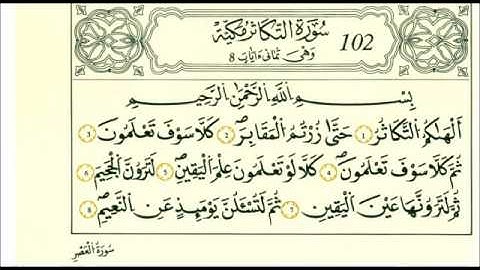 سُورَةُ التَّكَاثُرِ مَكِّيَّةٌ 102
وَهِيَ ثَمَانِي ءَايَاتٍ 8
بِسْمِ اللَّهِ الرَّحْمَٰنِ الرَّحِيمِ
أَلْهَاكُمُ التَّكَاثُرُ ١ حَتَّىٰ زُرْتُمُ الْمَقَابِرَ ٢ كَلَّا سَوْفَ تَعْلَمُونَ ٣
ثُمَّ كَلَّا سَوْفَ تَعْلَمُونَ ٤ كَلَّا لَوْ تَعْلَمُونَ عِلْمَ الْيَقِينِ ٥ لَتَرَوُنَّ الْجَحِيمَ ٦
ثُمَّ لَتَرَوُنَّهَا عَيْنَ الْيَقِينِ ٧ ثُمَّ لَتُسْـَٔلُنَّ يَوْمَئِذٍ عَنِ النَّعِيمِ ٨
سُورَةُ الْعَصْرِ